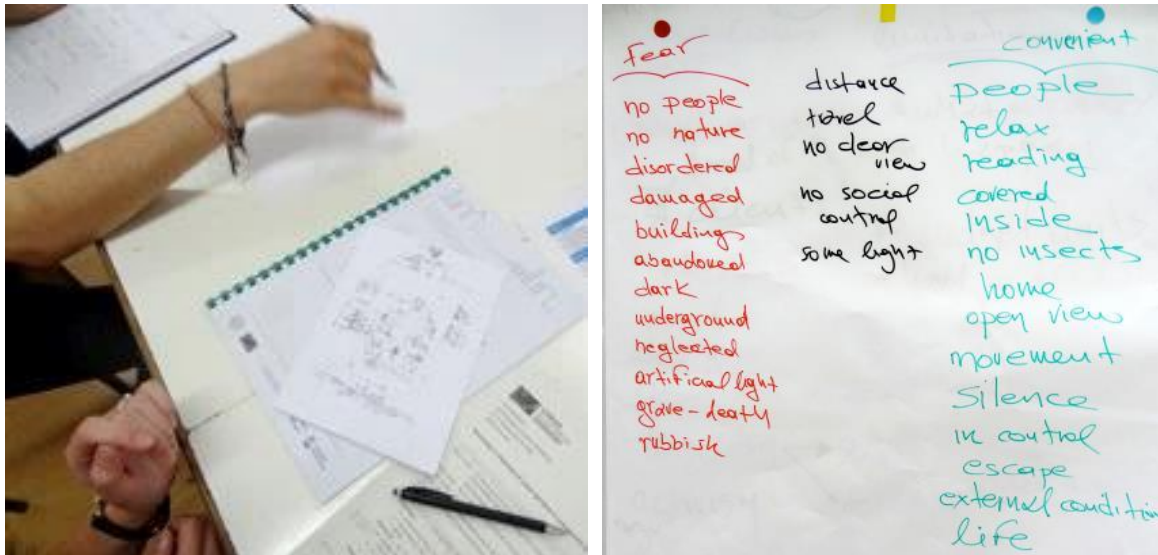 Fear
no people
no nature
disordered
damaged
buildings
abandoned
dark
underground
neglected
artificial light
grave-death
rubbish
distance
travel
no clear
view
no social
control
some light
convenient
people
relax
reading
covered
inside
no insects
home
open view
movement
silence
in control
escape
external condition
life